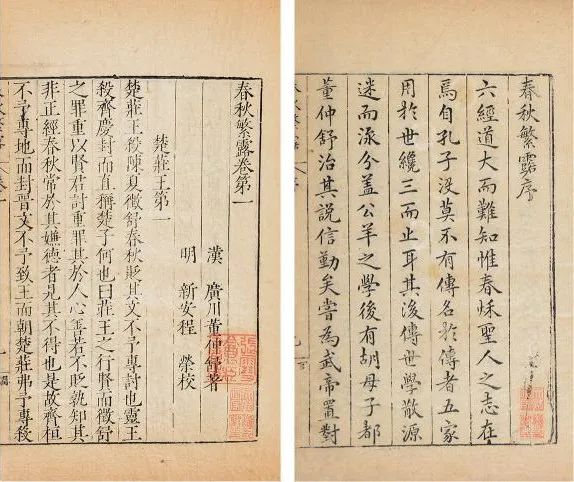 春秋繁露序
六經道大而難知惟春秌聖人之志在
焉自孔子沒莫不有傳名於傳者五家
用於世纔三而止耳其後傳世學散源
迷而派分蓋公羊之學後有胡母子都
董仲舒治其說信勤矣嘗為武帝置對
春秋繁露卷第一
漢 廣川董仲舒著
明 新安程 榮校
楚莊王第一
楚莊王殺陳夏徵舒春秋貶其文不予專討也靈王
殺齊慶封而直稱楚子何也曰莊王之行賢而徵舒
之罪重以賢君討重罪其於人心善若不貶孰知其
非正經春秋常於其嫌得者見其不得也是故齊桓
不予專地而封晉文不予致王而朝楚莊弗予專殺